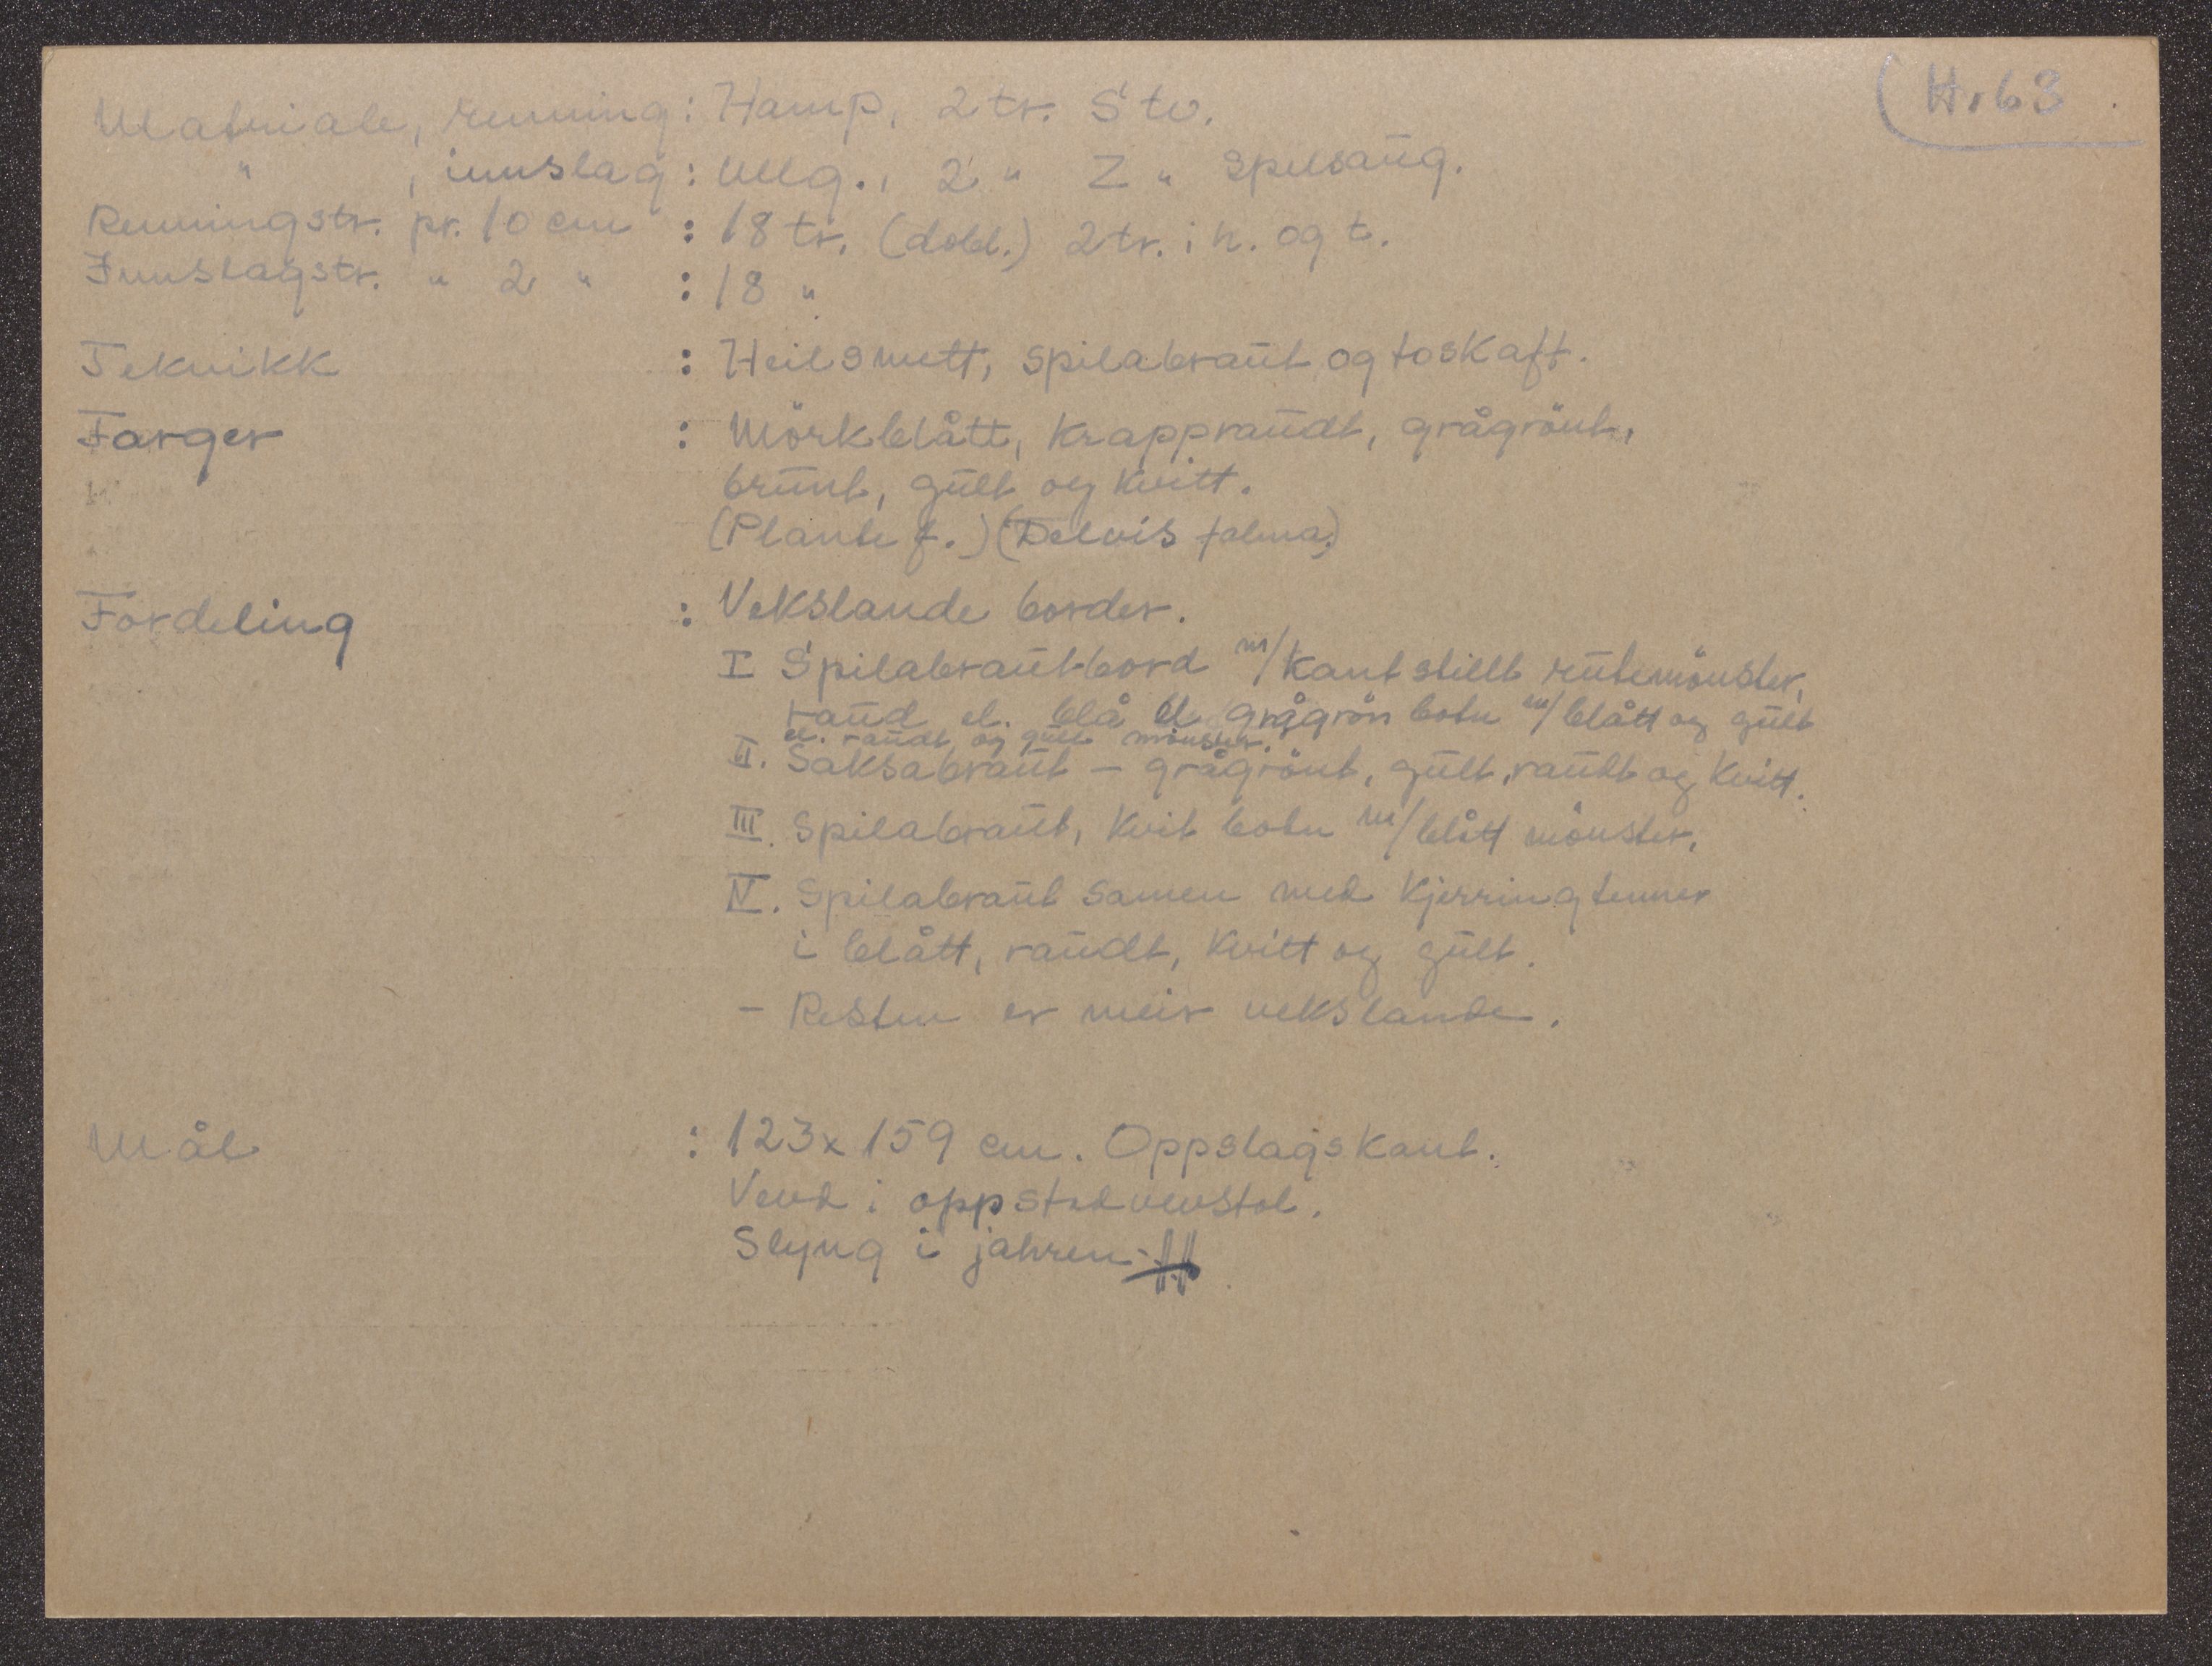 H. 63
Matriale, renning : Hamp, 2 tr. S tv.
" , innslag : Ullg., 2 " Z " spelsaug.
Renningstr. pr. 10 cm : 18 tr. (dobl.) 2 tr. i h. og t.
Innslagstr. " 2 " : 18 "
Teknikk : Heilsmett, spilabraut og toskaft.
Farger : Mörkblått, krappraudt, grågrönt,
brunt, gult og kvitt.
(Plante f.) (Delvis falma.)
Fordeling : Vekslande border.
I Spilabraut-bord m/kantstillt rutemönster,
raud el. blå el. grågrön botn m/blått og gult
el. raudt og gult mönster.
II. Saksabraut - grågrönt, gult, raudt og kvitt.
III. Spilabraut, kvit botn m/blått mönster.
IV. Spilabraut samen med kjerringtenner
i blått, raudt, kvitt og gult.
- Resten er meir vekslande.
Mål : 123 x 159 cm. Oppslagskant.
Vevd i oppstadvevstol.
Slyng i jahren